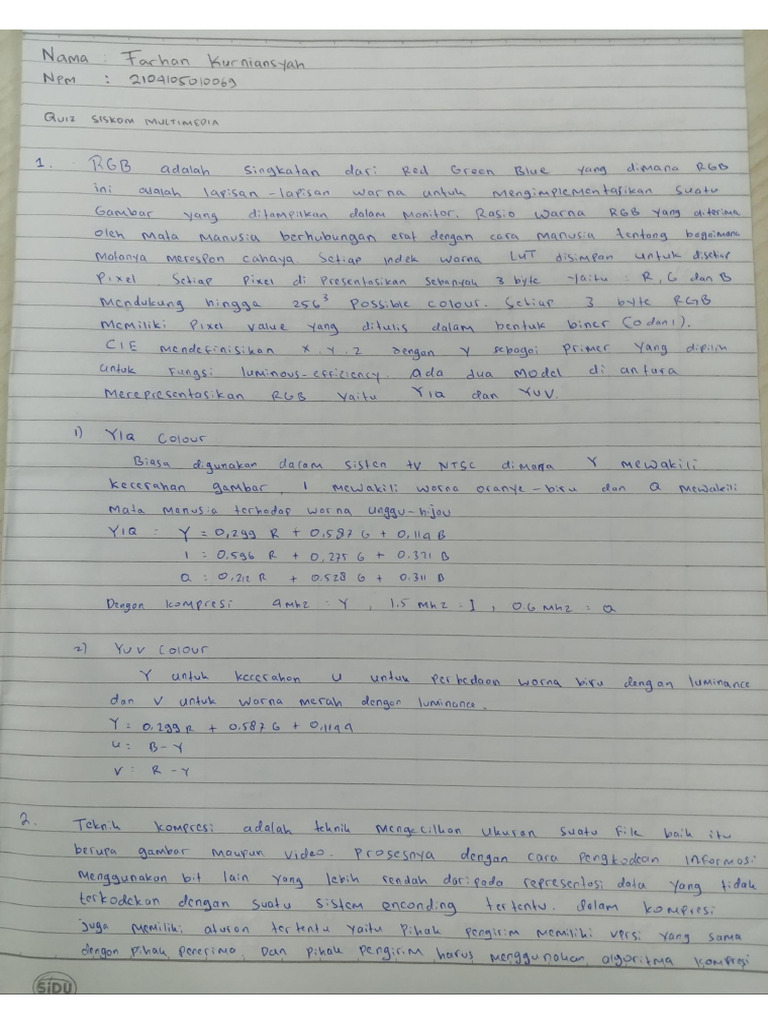 Nama : Farhan Kurniansyah
Npm : 2104105010069
QUIZ SISKOM MULTIMEDIA
1. RGB adalah singkatan dari Red Green Blue yang dimana RGB
ini adalah lapisan-lapisan warna untuk mengimplementasikan suatu
Gambar yang ditampilkan dalam monitor. Rasio warna RGB yang diterima
oleh mata manusia berhubungan erat dengan cara manusia tentang bagaimana
matanya merespon cahaya. Setiap indek warna LUT disimpan untuk disetiap
Pixel. Setiap Pixel di Presentasikan sebanyak 3 byte yaitu : R, G dan B
mendukung hingga 256³ Possible colour. Setiap 3 byte RGB
memiliki Pixel value yang ditulis dalam bentuk biner (0 dan 1).
CIE mendefinisikan X.Y.Z dengan Y sebagai primer yang dipilih
untuk fungsi luminous-efficiency. Ada dua model di antara
Merepresentasikan RGB yaitu YIQ dan YUV.
1) YIQ Colour
Biasa digunakan dalam sisten tv NTSC dimana Y mewakili
kecerahan gambar, I mewakili warna oranye-biru dan Q mewakili
mata manusia terhadap warna unggu-hijau
YIQ : Y = 0,299 R + 0,587 G + 0,114 B
I = 0.596 R + 0,275 G + 0.321 B
Q : 0.212 R + 0.528 G + 0.311 B
Dengan kompresi 4 Mhz = Y , 1.5 Mhz = I , 0.6 Mhz = Q
2) YUV Colour
Y untuk kecerahan U untuk perbedaan warna biru dengan luminance
dan V untuk warna merah dengan luminance.
Y = 0.299 R + 0.587 G + 0,114
U : B - Y
V : R - Y
2. Teknik kompresi adalah teknik mengecilkan ukuran suatu file baik itu
berupa gambar maupun video. Prosesnya dengan cara pengkodean informasi
menggunakan bit lain yang lebih rendah daripada representasi data yang tidak
terkodekan dengan suatu sistem enconding tertentu. dalam kompresi
juga memiliki aturan tertentu yaitu pihak pengirim memiliki versi yang sama
dengan pihak penerima. Dan pihak pengirim harus menggunakan algoritma kompresi
SiDU